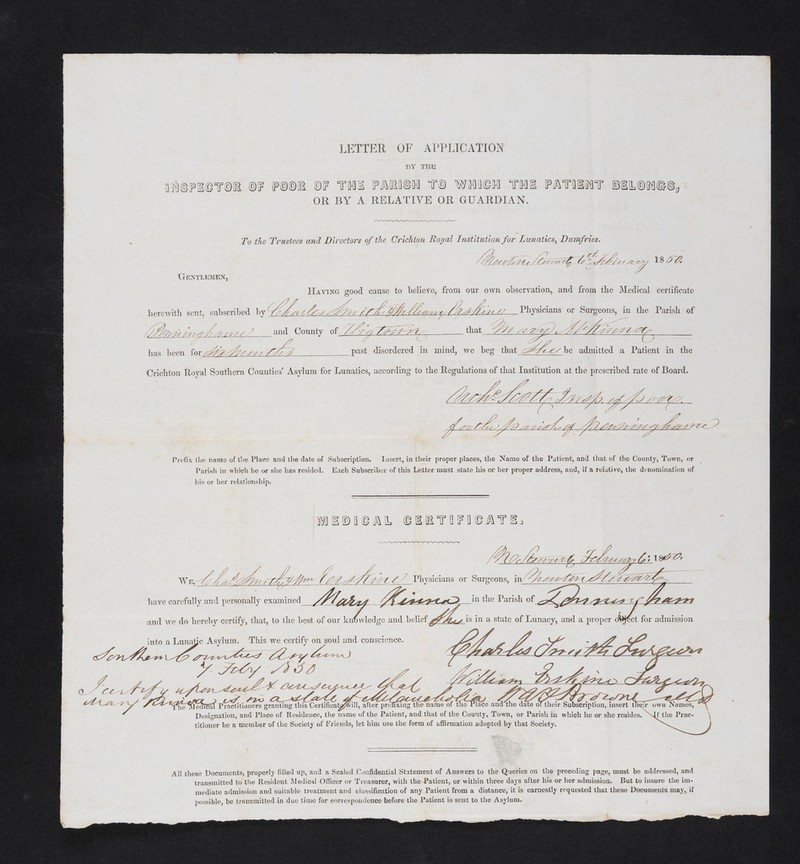 LETTER OF APPLICATION
BY THE
INSPECTOR OF POOR OF THE PARISH TO WHICH THE PATIENT BELONGS,
OR BY A RELATIVE OR GUARDIAN.
To the Trustees and Directors of the Crichton Royal Institution for Lunatics, Dumfries.
Newton Stewart 6th February 1850.
GENTLEMEN,
HAVING good cause to believe, from our own observation, and from the Medical certificate
herewith sent, subscribed by Charles Smith & William Erskine Physicians or Surgeons, in the Parish of
Penninghame and County of Wigtown that Mary McKinna
has been for six months past disordered in mind, we beg that she be admitted a Patient in the
Crichton Royal Southern Counties' Asylum for Lunatics, according to the Regulations of that Institution at the prescribed rate of Board.
Scott Insp. of poor
for the parish of Penninghame
Prefix the name of the Place and the date of Subscription. Insert, in their proper places, the Name of the Patient, and that of the County, Town, or
Parish in which he or she has resided. Each Subscriber of this Letter must state his or her proper address, and, if a relative, the denomination of
his or her relationship.
MEDICAL CERTIFICATE.
N. Stewart, February 6: 1850.
WE, Chas Smith & Wm Erskine Physicians or Surgeons, in Newton Stewart
have carefully and personally examined Mary Kinna in the Parish of Penningham
and we do hereby certify, that, to the best of our knowledge and belief She is in a state of Lunacy, and a proper object for admission
into a Lunatic Asylum. This we certify on soul and conscience.
Charles Smith Surgeon
Southern Counties Asylum
7 Feby 1850
William Erskine Surgeon
I certify upon soul & conscience that
Mary Kinna is in a state of Melancholia WAF Browne MD
The Medical Practitioners granting this Certificate will, after prefixing the name of the Place and the date of their Subscription, insert their own Names,
Designation, and Place of Residence, the name of the Patient, and that of the County, Town, or Parish in which he or she resides. If the Prac-
titioner be a member of the Society of Friends, let him use the form of affirmation adopted by that Society.
All these Documents, properly filled up, and a Sealed Confidential Statement of Answers to the Queries on the preceding page, must be addressed, and
transmitted to the Resident Medical Officer or Treasurer, with the Patient, or within three days after his or her admission. But to insure the im-
mediate admission and suitable treatment and classification of any Patient from a distance, it is earnestly requested that these Documents may, if
possible, be transmitted in due time for correspondence before the Patient is sent to the Asylum.